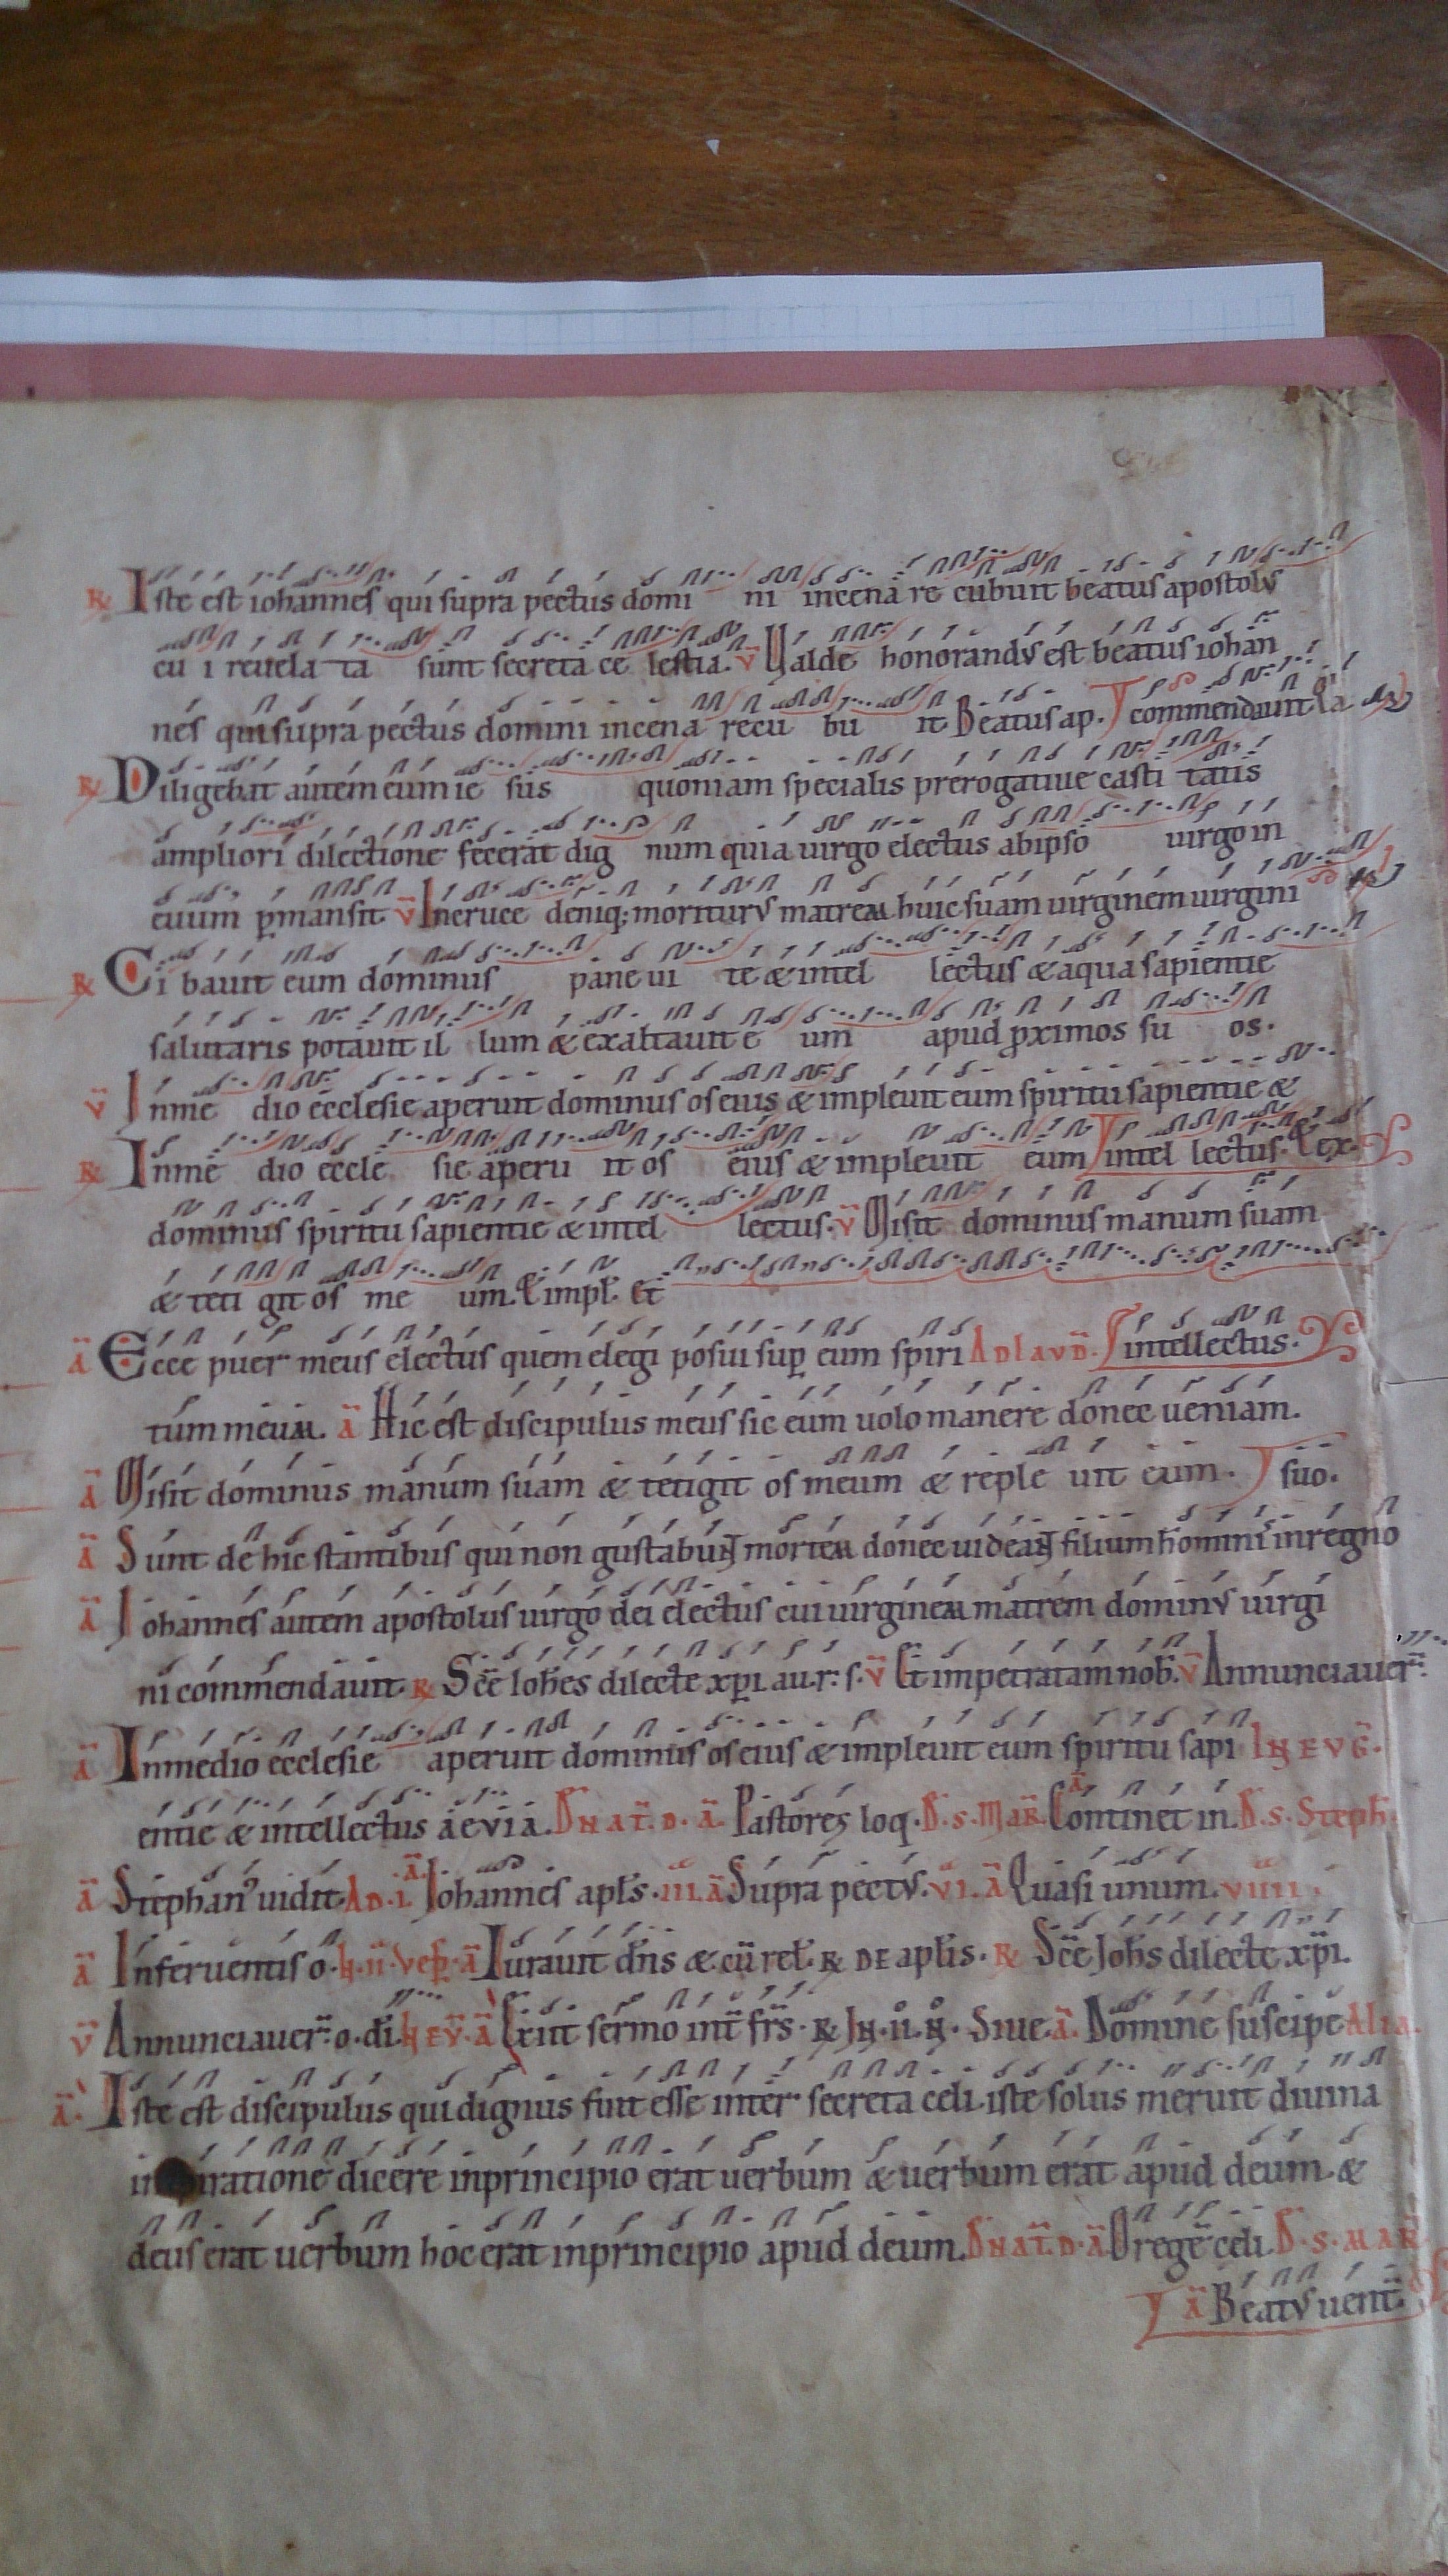 R Iste est iohannes qui supra pectus domi ni incena re cubuit beatus apostolus
cu i reuela ta sunt secreta ce lestia. V Ualde honorandus est beatus iohan
nes qui supra pectus domini incena recu bu it Beatus ap. commendauit
R Diligebat autem eum ie sus quoniam specialis prerogatiue casti tatis
ampliori dilectione fecerat dig num quia uirgo electus abipso uirgo in
euum pmansit V Incruce deniq; moriturus matrem huic suam uirginem uirgini
R Ci bauit eum dominus pane ui te & intel lectus & aqua sapientie
salutaris potauit il lum & exaltauit e um apud proximos su os.
V Inme dio ecclesie aperuit dominus os eius & impleuit eum spiritu sapientie &
R Inme dio eccle sie aperu it os eius & impleuit eum intel lectus.
dominus spiritu sapientie & intel lectus. V Misit dominus manum suam
& teti git os me um. & impl. Et
A Ecce puer meus electus quem elegi posui sup eum spiri AD LAVD. intellectus.
tum meum. A Hic est discipulus meus sic eum uolo manere donec ueniam.
A Misit dominus manum suam & tetigit os meum & reple uit eum. suo.
A Sunt de hic stantibus qui non gustabunt mortem donec uideant filium hominis inregno
A Iohannes autem apostolus uirgo dei electus cui uirginem matrem dominus uirgi
ni commendauit. R Sce Iohes dilecte xpi au.r: s. V Et impetratam nob. V Annunciauer
A Inmedio ecclesie aperuit dominus os eius & impleuit eum spiritu sapi IN EVG.
entie & intellectus aeuia. D NAT. D. A. Pastores loq. D. S. MAR. A Continet in. D. S. Steph
A Stephan' uidit AD. I. A. Iohannes apls. III. A Supra pectus. VI. A Quasi unum. VIIII
A Inferuentis o. H. II. VEP. A Iurauit dns & cu rel. R DE aplis. R Sce Iohs dilecte xpi.
V Annunciauer o. di. IN EV. A Exiit sermo int frs. R IN. II. N. Siue A. Domine suscipe Alia.
A. Iste est discipulus qui dignus fuit esse inter secreta celi. iste solus meruit diuina
dicere inprincipio erat uerbum & uerbum erat apud deum. &
deus erat uerbum hoc erat inprincipio apud deum. D NAT. D. A O rege celi D. S. MAR
A Beatus uent.